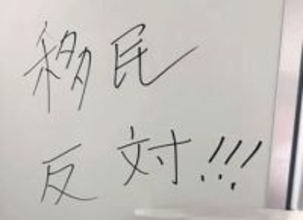 移民
反対!!!